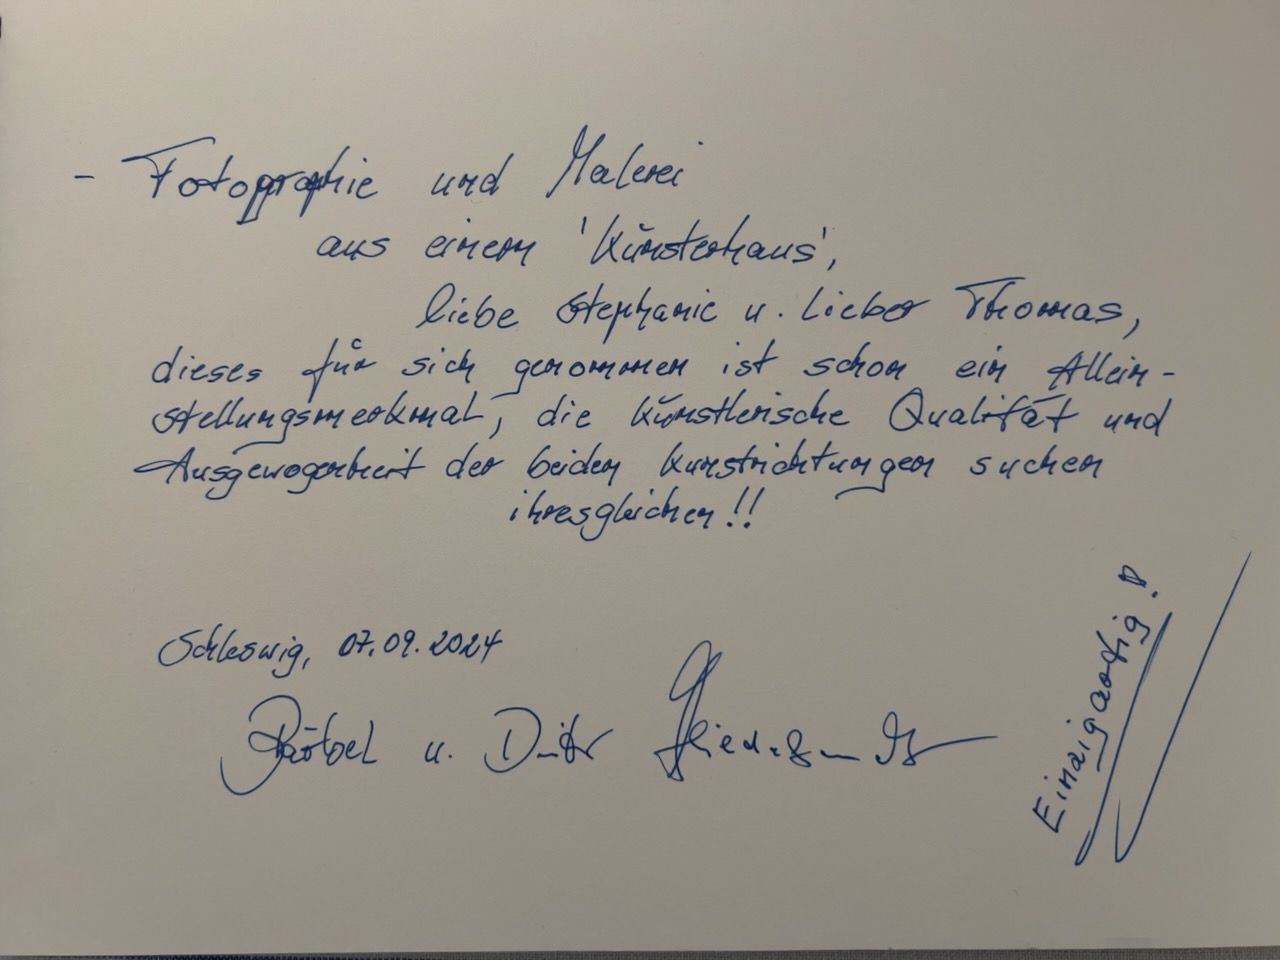 - Fotographie und Malerei
aus einem 'Künsterhaus',
liebe Stephanie u. Lieber Thomas,
dieses für sich genommen ist schon ein Allein-
stellungsmerkmal, die künstlerische Qualität und
Ausgewogenheit der beiden Kunstrichtungen suchen
ihresgleichen!!
Schleswig, 07.09.2024
Bärbel u.
Einzigartig!